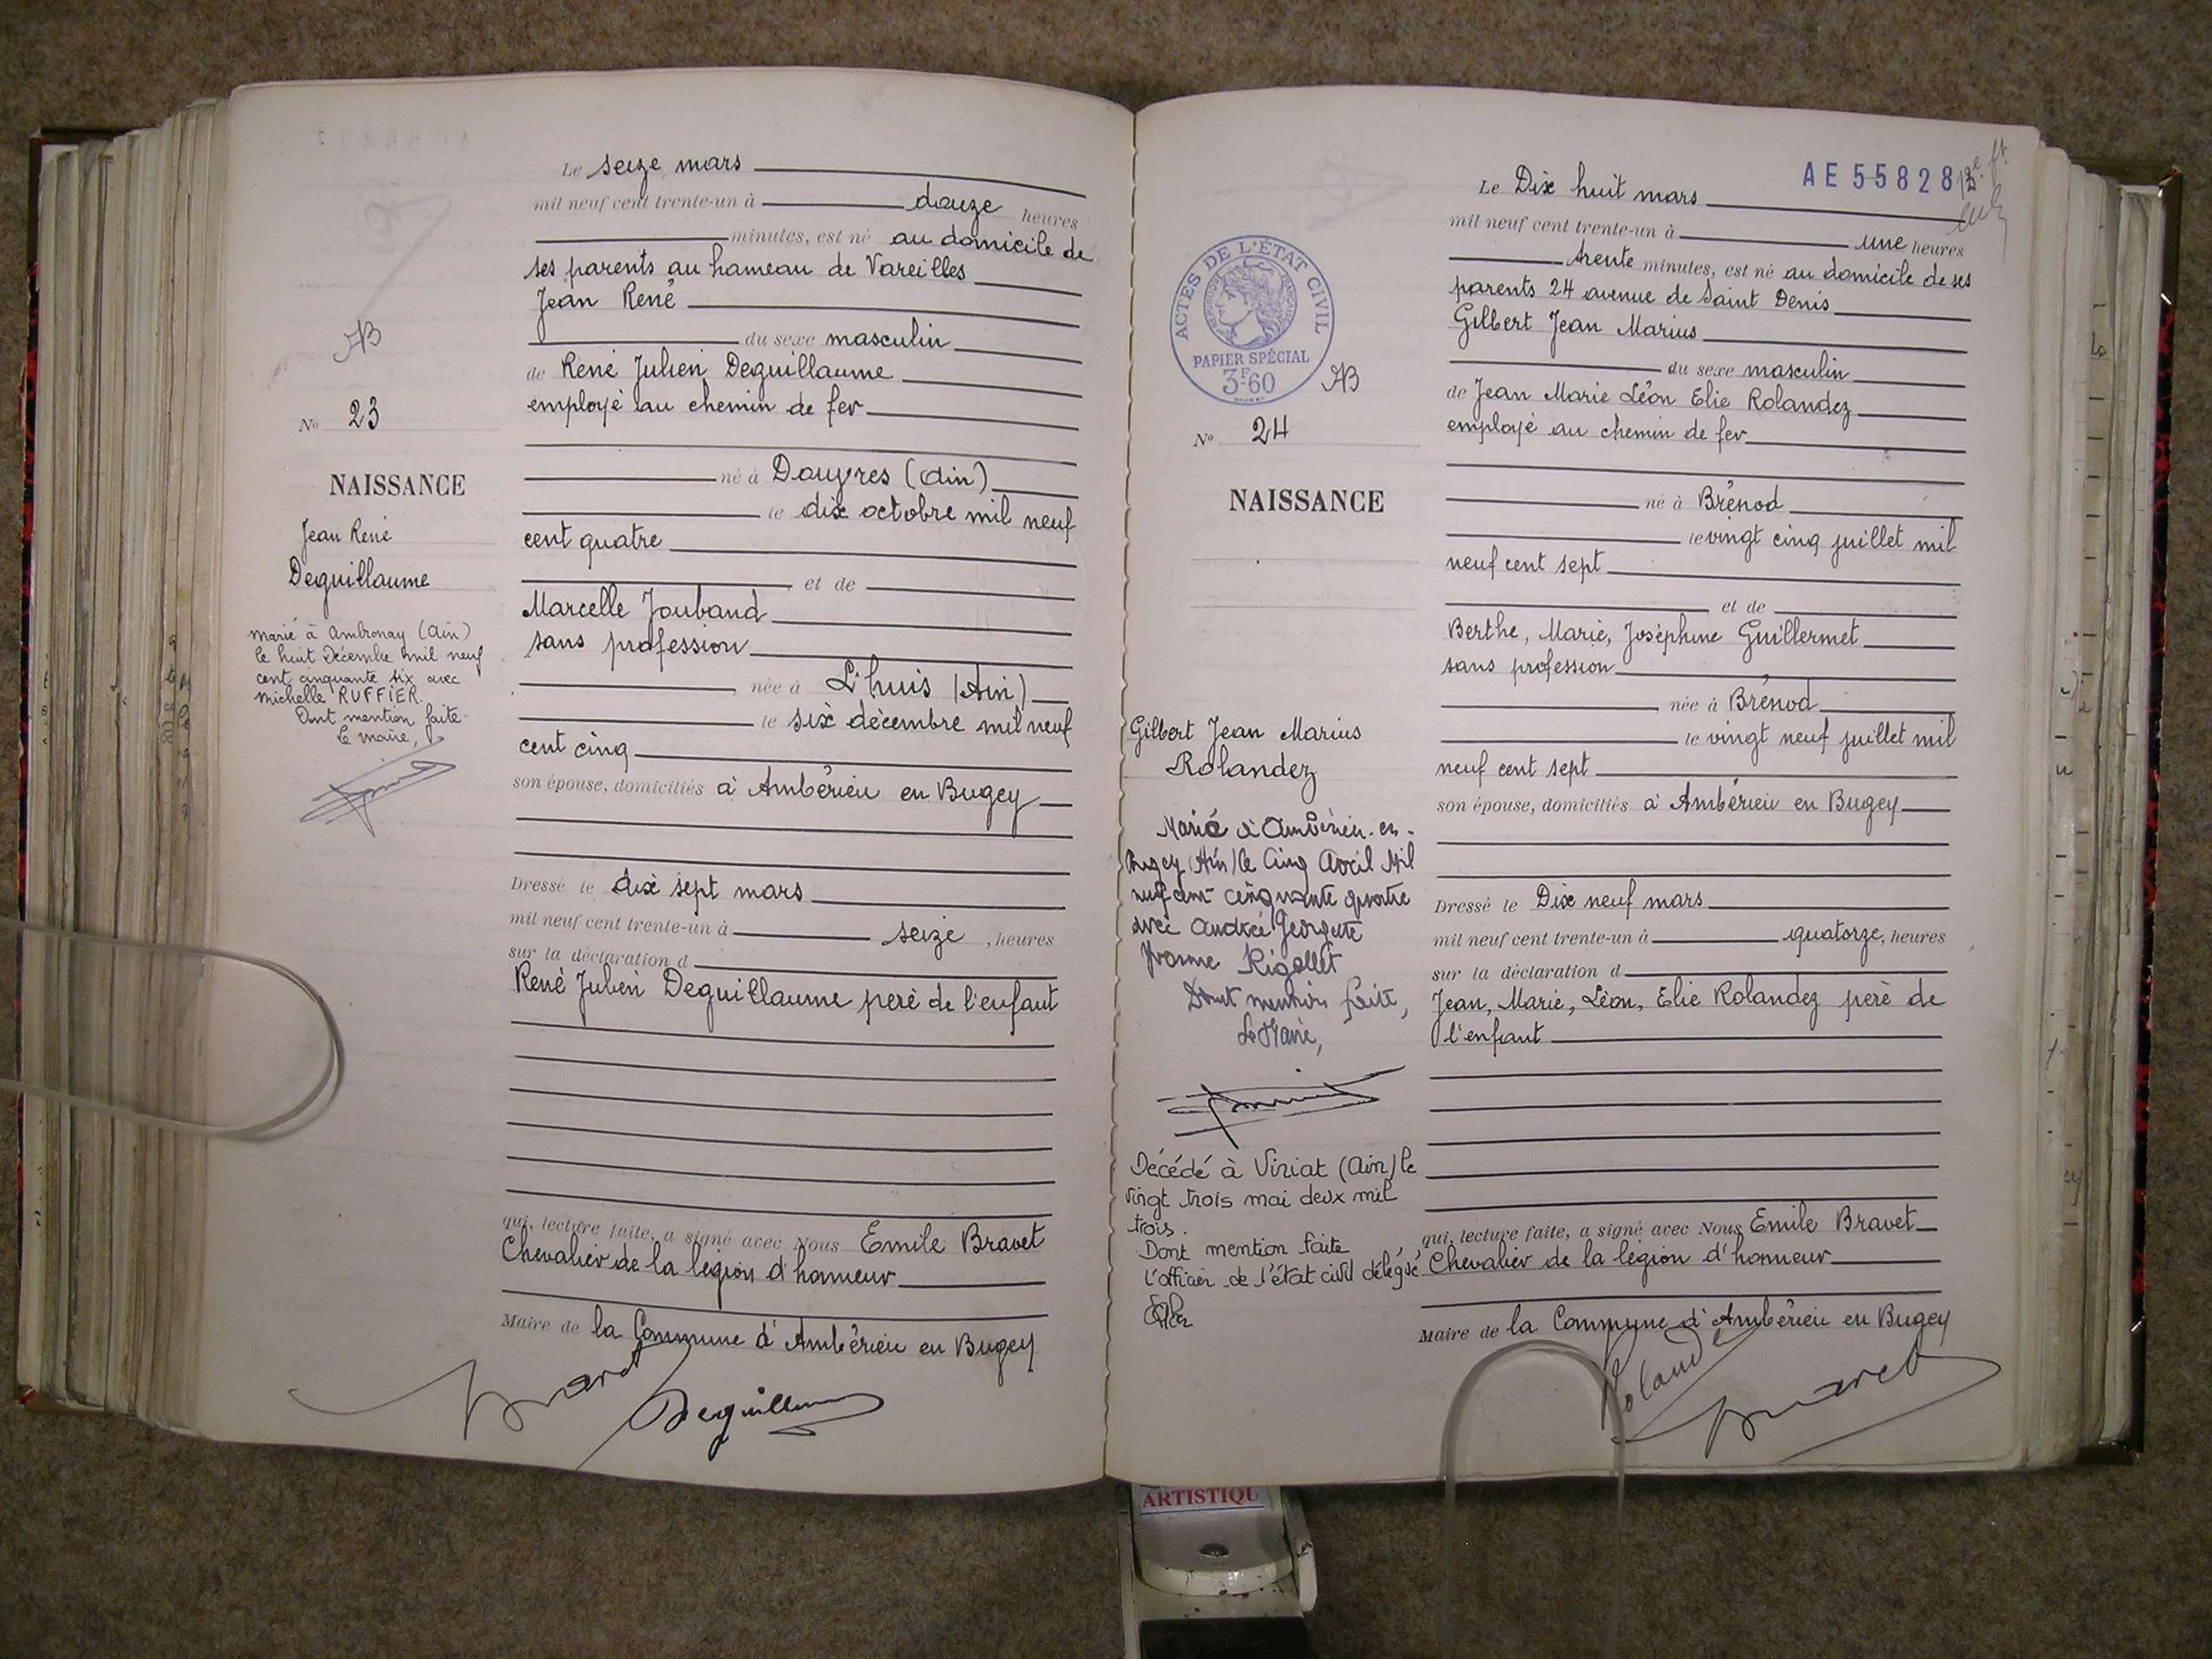 Le seize mars
mil neuf cent trente-un à douze heures
minutes, est né au domicile de
ses parents au hameau de Vareilles
Jean René
du sexe masculin
de René Julien Deguillaume
employé au chemin de fer
né à Douvres (Ain)
le dix octobre mil neuf
cent quatre
et de
Marcelle Jouband
sans profession
née à L'huis (Ain)
le six décembre mil neuf
cent cinq
son épouse, domiciliés à Ambérieu en Bugey
Dressé le dix sept mars
mil neuf cent trente-un à seize, heures
sur la déclaration d
René Julien Deguillaume père de l'enfant
qui, lecture faite, a signé avec Nous Emile Bravet
Chevalier de la légion d'honneur
Maire de la Commune d'Ambérieu en Bugey
Bravet
Deguillaume
AB
No 23
NAISSANCE
Jean René
Deguillaume
marié à Ambronay (Ain)
le huit Décembre mil neuf
cent cinquante six avec
Michelle RUFFIER.
Dont mention faite
Le maire,
AE 55828
Le Dix huit mars
mil neuf cent trente-un à une heures
trente minutes, est né au domicile de ses
parents 24 avenue de Saint Denis
Gilbert Jean Marius
du sexe masculin
de Jean Marie Léon Elie Rolandez
employé au chemin de fer
né à Brénod
le vingt cinq juillet mil
neuf cent sept
et de
Berthe, Marie, Joséphine Guillermet
sans profession
née à Brénod
le vingt neuf juillet mil
neuf cent sept
son épouse, domiciliés à Ambérieu en Bugey
Dressé le Dix neuf mars
mil neuf cent trente-un à quatorze, heures
sur la déclaration d
Jean, Marie, Léon, Elie Rolandez père de
l'enfant
qui, lecture faite, a signé avec Nous Emile Bravet
Chevalier de la légion d'honneur
Maire de la Commune d'Ambérieu en Bugey
Rolandez
Bravet
ACTES DE L'ÉTAT CIVIL
RÉPUBLIQUE FRANÇAISE
PAPIER SPÉCIAL
3F60
AB
No 24
NAISSANCE
Gilbert Jean Marius
Rolandez
Marié à Ambérieu-en-
Bugey (Ain) le Cinq Avril Mil
neuf cent cinquante quatre
avec Andrée Georgette
Yvonne Rigollet
Dont mention faite,
Le Maire,
Décédé à Viriat (Ain) le
vingt trois mai deux mil
trois.
Dont mention faite,
l'officier de l'état civil délégué
ARTISTIQU